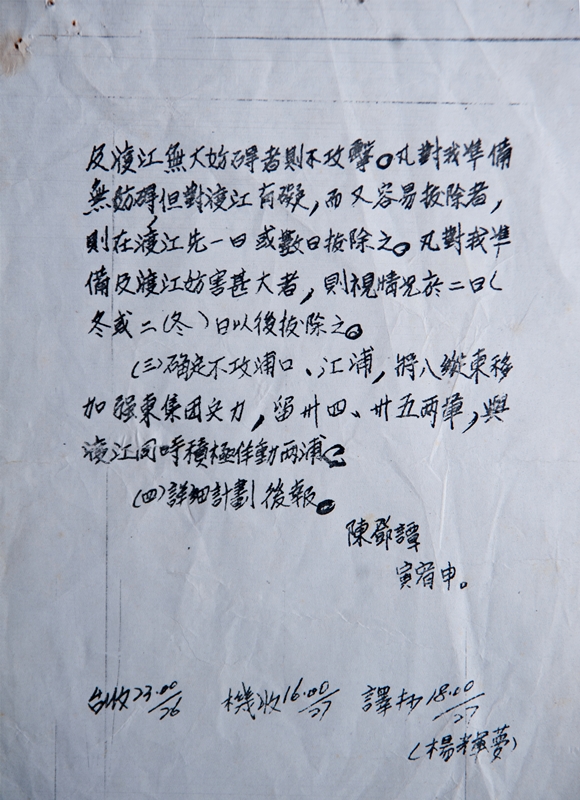 及渡江無大妨碍者則不攻擊。凡對我準備
無妨碍但對渡江有礙，而又容易拔除者，
則在渡江先一日或數日拔除之。凡對我準
備及渡江妨害甚大者，則視情况於二日(
冬或二(冬)日以後拔除之。
(三)确定不攻浦口、江浦，將八縱東移
加强東集团兵力，留卅四、卅五两軍，與
渡江同時積極佯動两浦。
(四)詳細計劃後報。
陳鄧譚
寅宥申。
台收23.00/26 機收16.00/27 譯抄18.00/27
(楊輝夢)